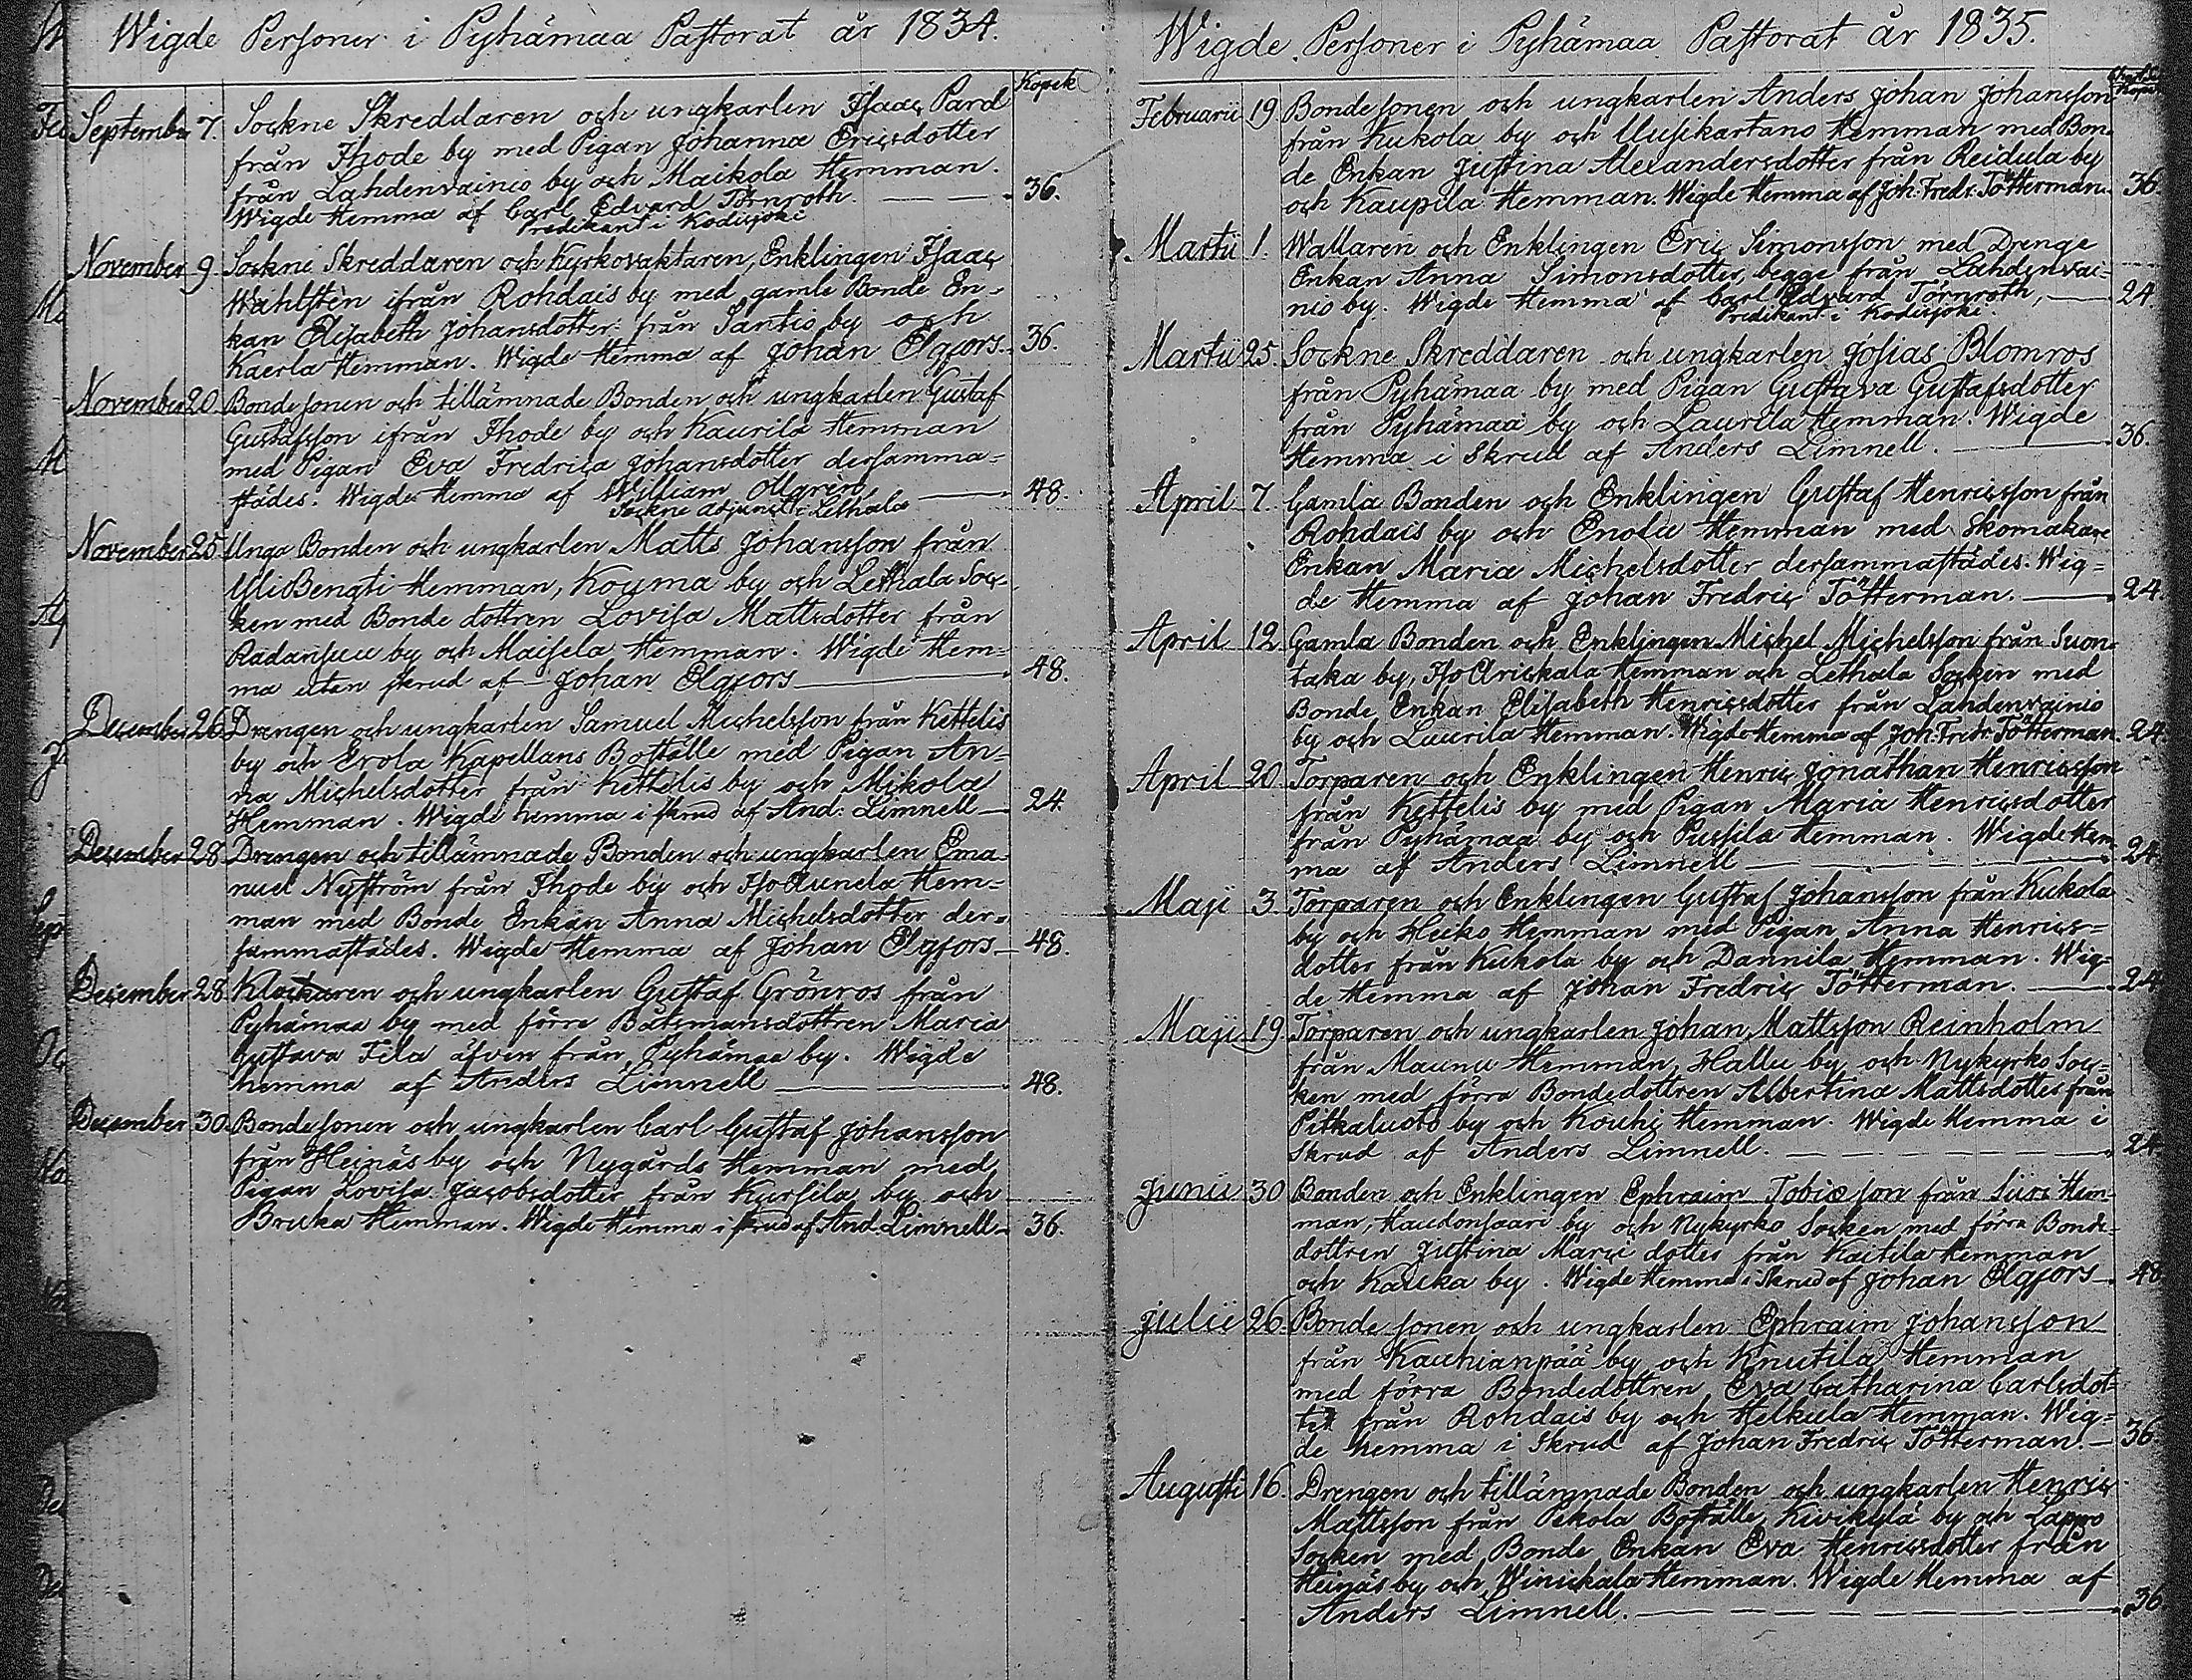 Wigde Personer i Pyhämaa Pastorat år 1834.
Kopek
September 7. Sockne Skreddaren och ungkarlen Isaac Pard
från Ihode by med Pigan Johanna Ericsdotter
från Lahdenvainio by och Maikola Hemman.
Wigde Hemma af Carl Edvard Törnroth. 36.
Predikant i Kodisjoki
November 9. Sockne Skreddaren och Kyrkovaktaren, Enklingen Isaac
Wahlstén ifrån Rohdais by med gamle Bonde En-
kan Elisabeth Johansdotter från Santio by och
Kaerla Hemman. Wigde Hemma af Johan Elgfors. 36.
November 20. Bonde sonen och tillämnade Bonden och ungkarlen Gustaf
Gustafsson ifrån Ihode by och Kaurila Hemman
med Pigan Eva Fredrica Johansdotter dersamma-
städes. Wigde Hemma af William Ollgren 48.
Sockne Adjunct i Lethala
November 25. Unga Bonden och ungkarlen Matts Johansson från
Yli Bengti Hemman, Kouma by och Lethala Soc-
ken med Bonde dottren Lovisa Mattsdotter från
Radansuu by och Maisela Hemman. Wigde Hem-
ma utan skrud af Johan Elgfors 48.
December 26. Drengen och ungkarlen Samuel Michelsson från Kettelis
by och Erola Kapellans Boställe med Pigan An-
na Michelsdotter från Kettelis by och Mikola
Hemman. Wigde hemma i skrud af And: Limnell 24.
December 28. Drengen och tillämnade Bonden och ungkarlen Ema-
nuel Nyström från Ihode by och Iso Aunela Hem-
man med Bonde Enkan Anna Michelsdotter der-
sammastädes. Wigde Hemma af Johan Elgfors 48.
December 28. Klockaren och ungkarlen Gustaf Grönros från
Pyhämaa by med förre Båtsmansdottren Maria
Gustava Fila äfven från Pyhämaa by. Wigde
hemma af Anders Limnell 48.
December 30. Bonde sonen och ungkarlen Carl Gustaf Johansson
från Heinäs by och Nygårds Hemman med
Pigan Lovisa Jacobsdotter från Kursila by och
Bruka Hemman. Wigde Hemma i skrud af And. Limnell 36.
Wigde Personer i Pyhämaa Pastorat år 1835.
Februarii 19. Bonde sonen och ungkarlen Anders Johan Johansson
från Kukola by och Uusikartano Hemman med Bon-
de Enkan Justina Alexandersdotter från Reidula by
och Kaupila Hemman. Wigde Hemma af Joh: Fredr: Tötterman. 36.
Martii 1. Wallaren och Enklingen Eric Simonsson med Drenge
Enkan Anna Simonsdotter, begge från Lahdenvai-
nio by. Wigde Hemma af Carl Edvard Törnroth, 24.
Predikant i Kodisjoki.
Martii 25. Sockne Skreddaren och ungkarlen Josias Blomros
från Pyhämaa by med Pigan Gustava Gustafsdotter
från Pyhämaa by och Laurila Hemman. Wigde
Hemma i Skrud af Anders Limnell. 36.
April 7. Gamla Bonden och Enklingen Gustaf Henricsson från
Rohdais by och Enola Hemman med Skomakare
Enkan Maria Michelsdotter dersammastädes. Wig-
de Hemma af Johan Fredric Tötterman. 24.
April 12. Gamla Bonden och Enklingen Michel Michelsson från Suon-
taka by, Iso Ariskala Hemman och Lethala Socken med
Bonde Enkan Elisabeth Henricsdotter från Lahdenvainio
by och Laurila Hemman. Wigde Hemma af Joh: Fredr: Tötterman. 24.
April 20. Torparen och Enklingen Henric Jonathan Henricsson
från Kettelis by med Pigan Maria Henricsdotter
från Pyhämaa by och Pussila Hemman. Wigde Hem-
ma af Anders Limnell 24.
Maji 3. Torparen och Enklingen Gustaf Johansson från Kukola
by och Heiko Hemman med Pigan Anna Henrics-
dotter från Kukola by och Dannila Hemman. Wig-
de Hemma af Johan Fredric Tötterman. 24.
Maji 19. Torparen och ungkarlen Johan Mattsson Reinholm
från Maunu Hemman, Hallu by och Nykyrko Soc-
ken med förra Bondedottren Albertina Mattsdotter från
Pitkaluoto by och Kouhi Hemman. Wigde Hemma i
Skrud af Anders Limnell. 24.
Junii 30 Bonden och Enklingen Ephraim Tobiæson från Susi Hem-
man, Haudonsaari by och Nykyrko Socken med förra Bonde-
dottren Justina Marci dotter från Kaitila Hemman
och Kauka by. Wigde Hemma i Skrud af Johan Elgfors 48.
Julii 26. Bonde sonen och ungkarlen Ephraim Johansson
från Kauhianpää by och Knutila Hemman
med förra Bondedottren Eva Catharina Carlsdot-
ter från Rohdais by och Helkula Hemman. Wig-
de hemma i Skrud af Johan Fredric Tötterman. 36
Augusti 16. Drengen och tillämnade Bonden och ungkarlen Henric
Mattsson från Pekola Boställe, Kivikylä by och Lappo
Socken med Bonde Enkan Eva Henricsdotter från
Heinäs by och Winickala Hemman. Wigde Hemma af
Anders Limnell. 36